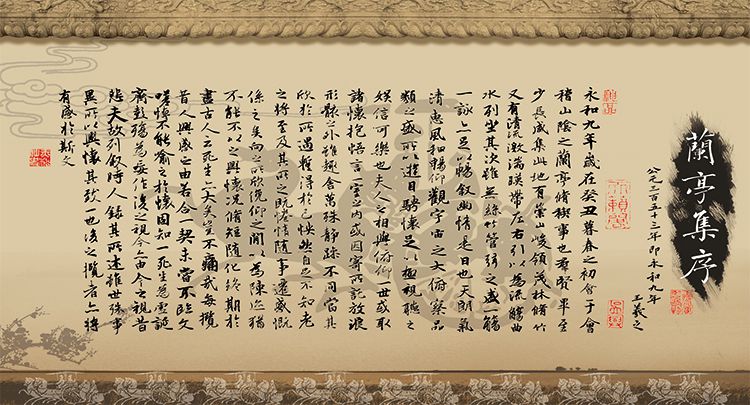 蘭亭集序
公元三百五十三年即永和九年
王羲之
永和九年歲在癸丑暮春之初會于會
稽山陰之蘭亭脩禊事也群賢畢至
少長咸集此地有崇山峻領茂林脩竹
又有清流激湍暎帶左右引以為流觴曲
水列坐其次雖無絲竹管弦之盛一觴
一詠亦足以暢叙幽情是日也天朗氣
清惠風和暢仰觀宇宙之大俯察品
類之盛所以遊目騁懷足以極視聽之
娛信可樂也夫人之相與俯仰一世或取
諸懷抱悟言一室之內或因寄所託放浪
形骸之外雖趣舍萬殊靜躁不同當其
欣於所遇暫得於己怏然自足不知老
之將至及其所之既惓情隨事遷感慨
係之矣向之所欣俛仰之間以為陳迹猶
不能不以之興懷況脩短隨化終期於
盡古人云死生亦大矣豈不痛哉每攬
昔人興感之由若合一契未嘗不臨文
嗟悼不能喻之於懷固知一死生為虛誕
齊彭殤為妄作後之視今亦由今之視昔
悲夫故列叙時人錄其所述雖世殊事
異所以興懷其致一也後之攬者亦將
有感於斯文